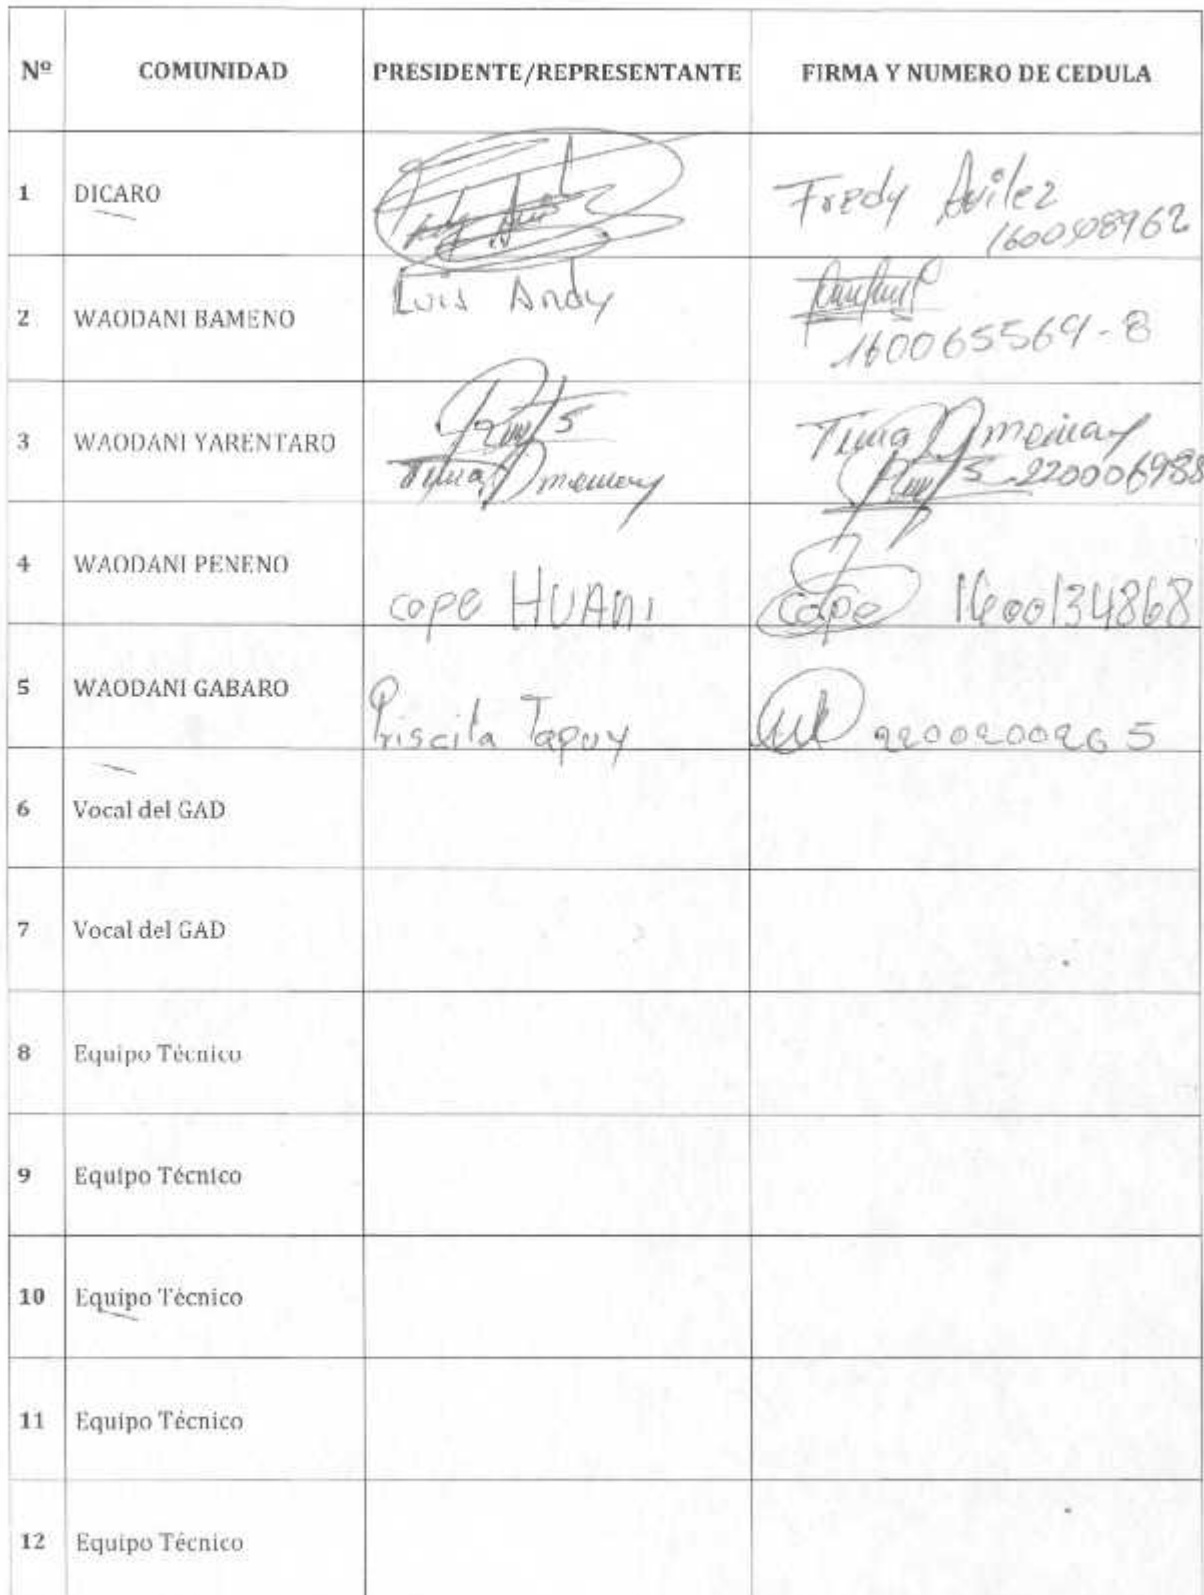 Nº COMUNIDAD PRESIDENTE/REPRESENTANTE FIRMA Y NUMERO DE CEDULA
1 DICARO Fredy Avilez
1600508962
2 WAODANI BAMENO Luis Andy
160065569-8
3 WAODANI YARENTARO
2200006988
4 WAODANI PENENO cope HUANI cope 1600134868
5 WAODANI GABARO Priscila Tapuy 2200200265
6 Vocal del GAD
7 Vocal del GAD
8 Equipo Técnico
9 Equipo Técnico
10 Equipo Técnico
11 Equipo Técnico
12 Equipo Técnico